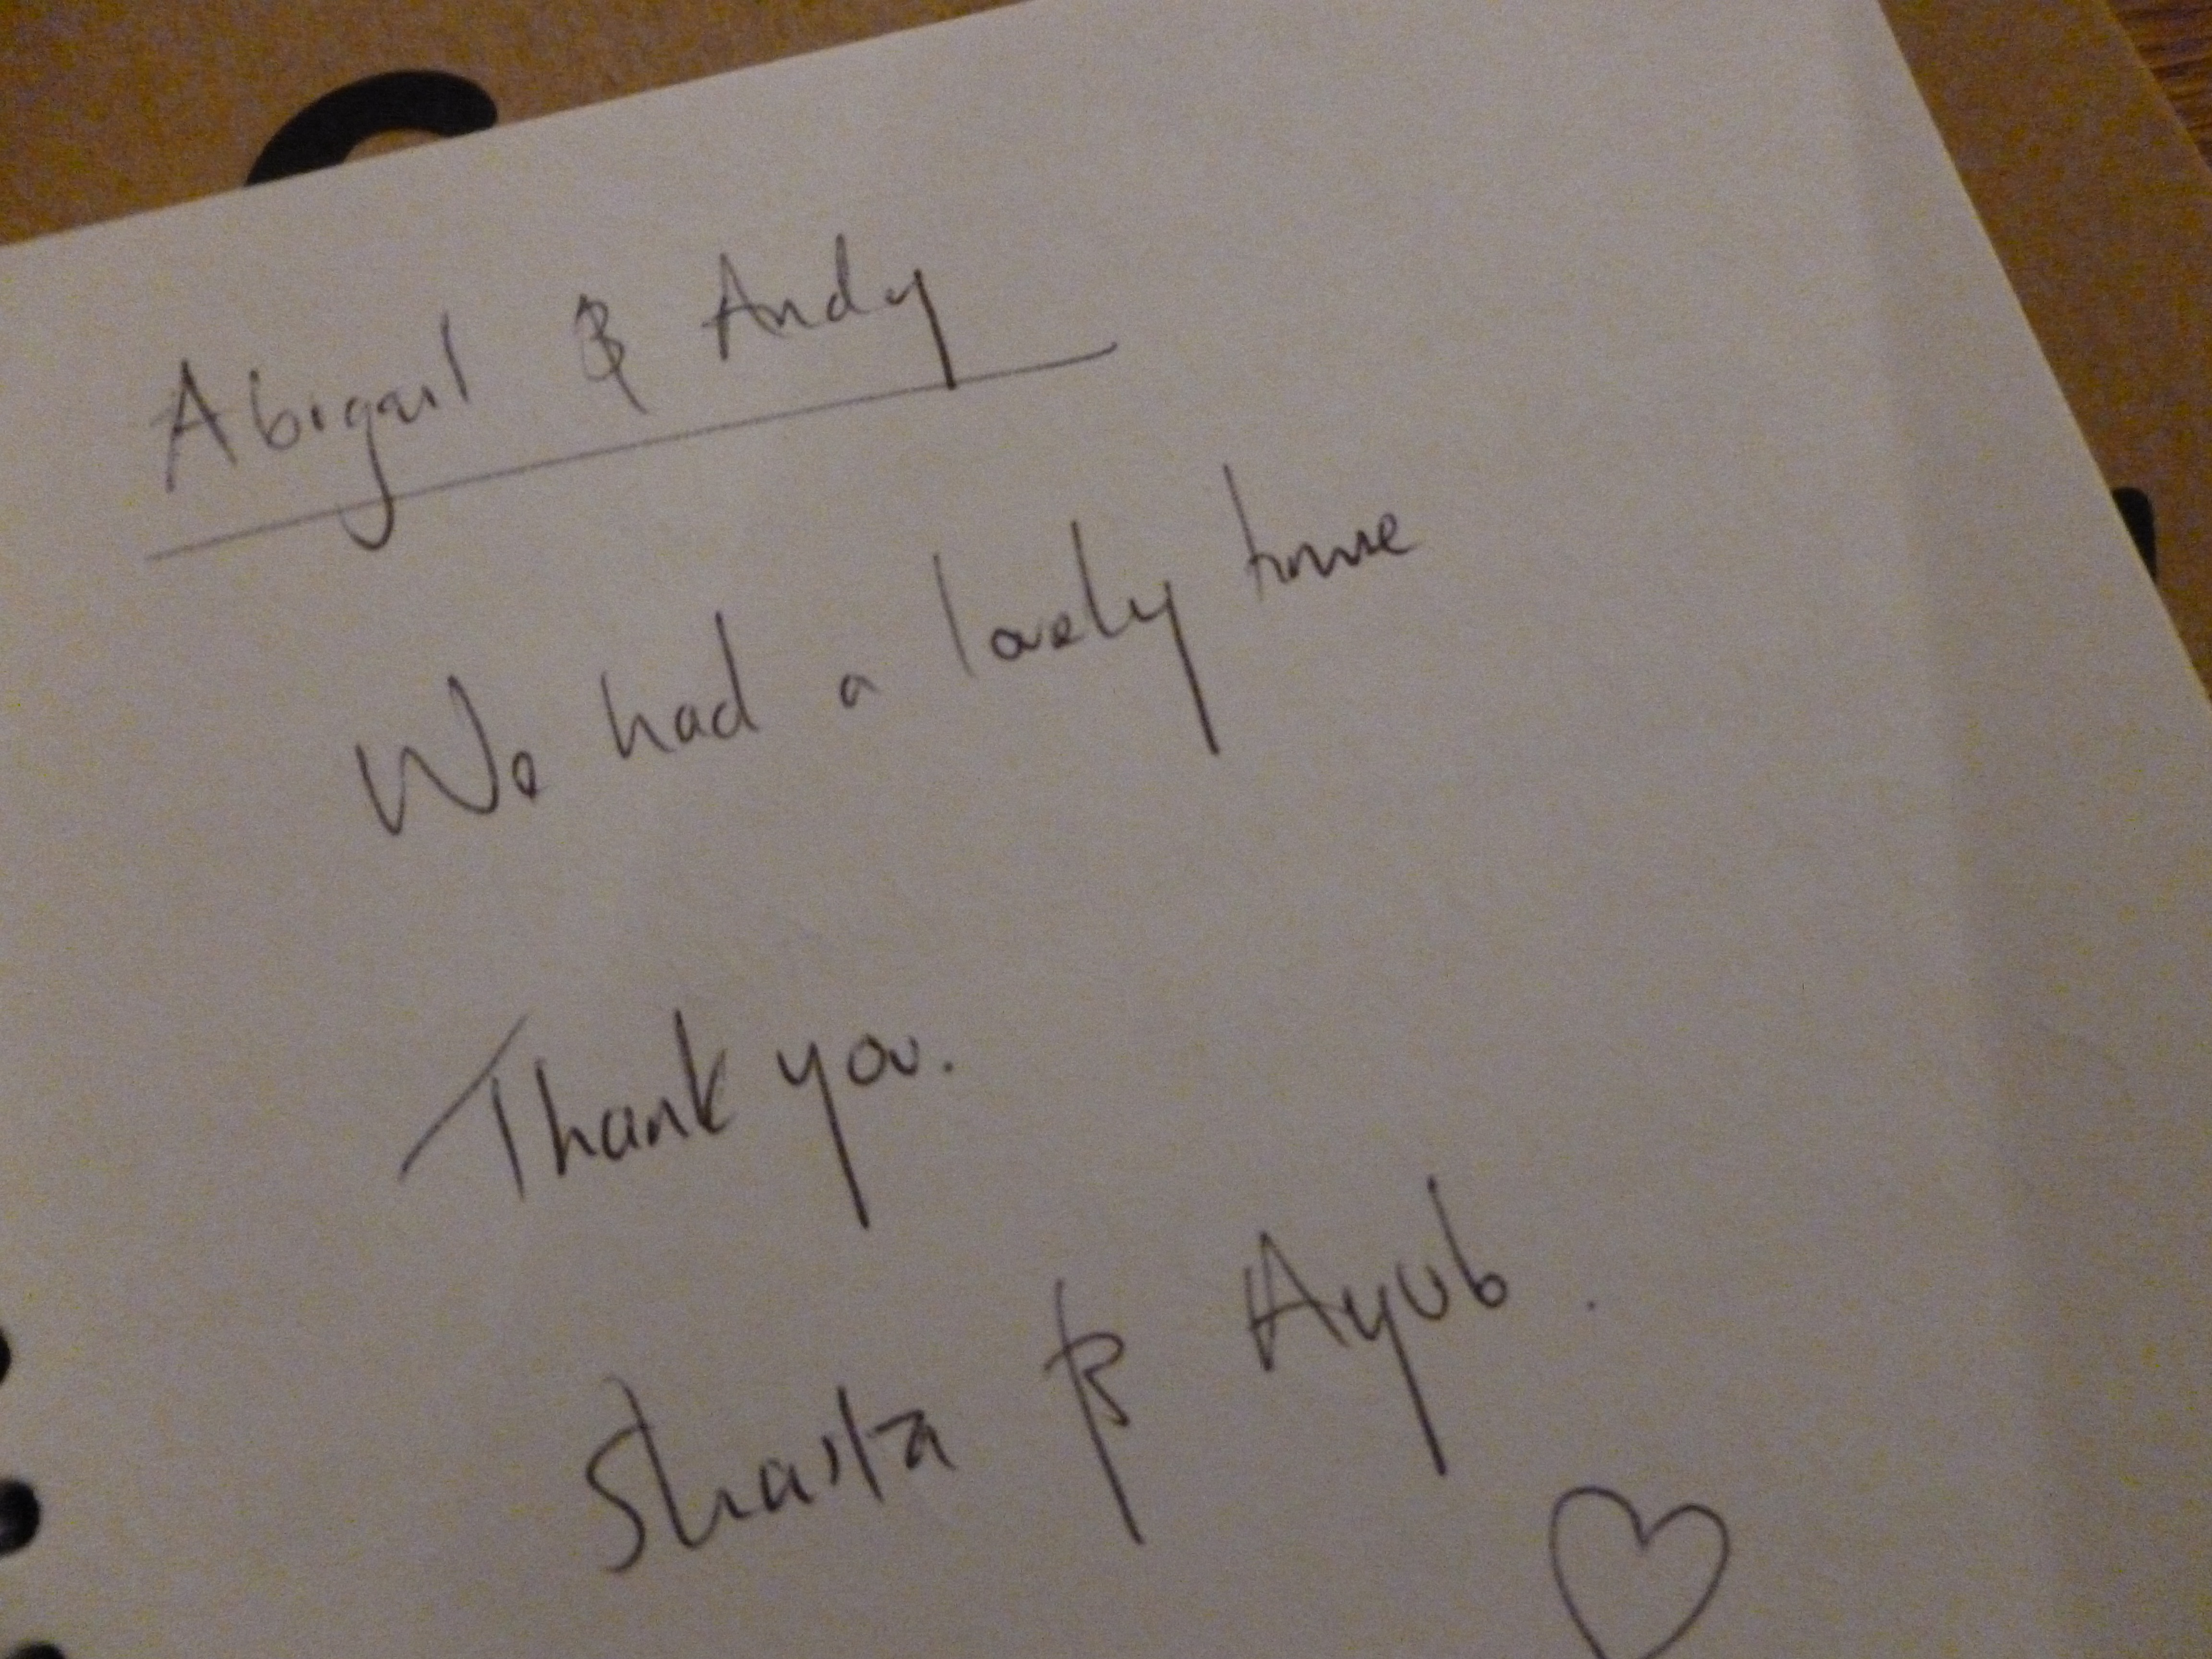 Abigail & Andy
We had a lovely time
Thank you.
Shaista & Ayub.